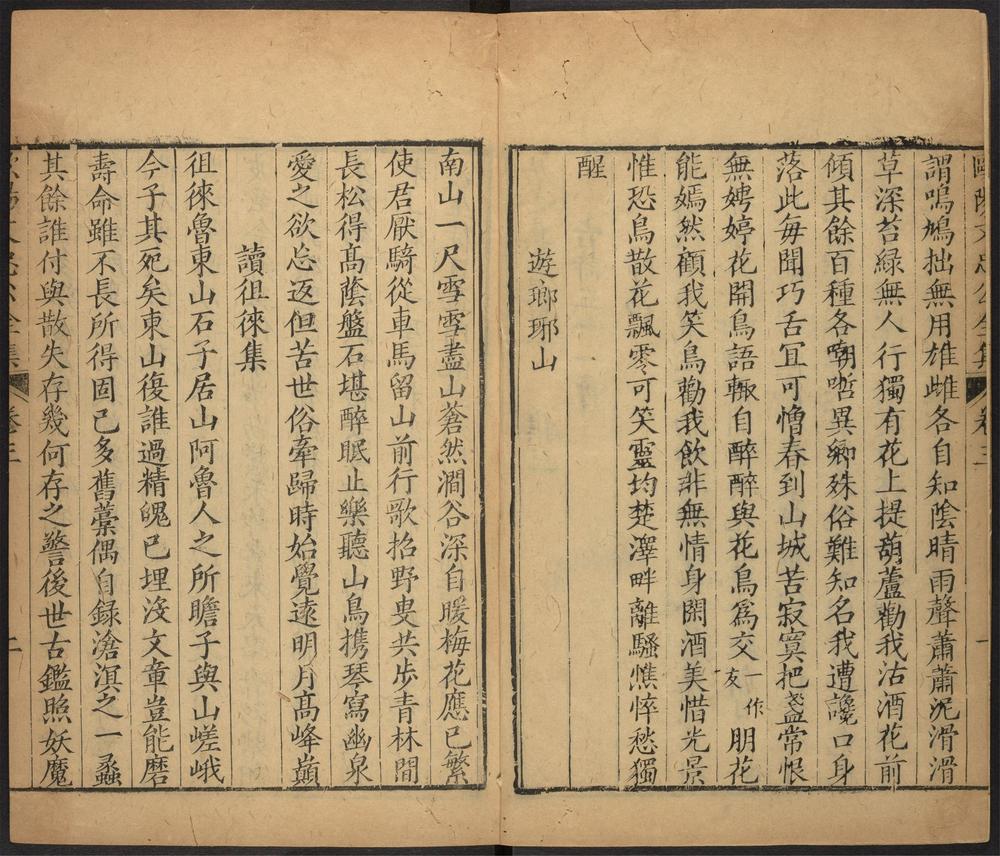 歐陽文忠公全集 卷三 一
謂鳴鳩拙無用雄雌各自知陰晴雨聲蕭蕭泥滑滑
草深苔綠無人行獨有花上提葫蘆勸我沽酒花前
傾其餘百種各嘲哳異鄉殊俗難知名我遭讒口身
落此每聞巧舌宜可憎春到山城苦寂寞把盞常恨
無娉婷花開鳥語輒自醉醉與花鳥爲交一作友朋花
能嫣然顧我笑鳥勸我飲非無情身閑酒美惜光景
惟恐鳥散花飄零可笑靈均楚澤畔離騷憔悴愁獨
醒
遊瑯琊山
南山一尺雪雪盡山蒼然澗谷深自暖梅花應已繁
使君厭騎從車馬留山前行歌招野叟共步青林間
長松得高蔭盤石堪醉眠止樂聽山鳥携琴寫幽泉
愛之欲忘返但苦世俗牽歸時始覺遠明月高峰巔
讀徂徠集
徂徠魯東山石子居山阿魯人之所瞻子與山嵯峨
今子其死矣東山復誰過精魄已埋沒文章豈能磨
壽命雖不長所得固已多舊藁偶自録滄溟之一蠡
其餘誰付與散失存幾何存之警後世古鑑照妖魔
卷三 二